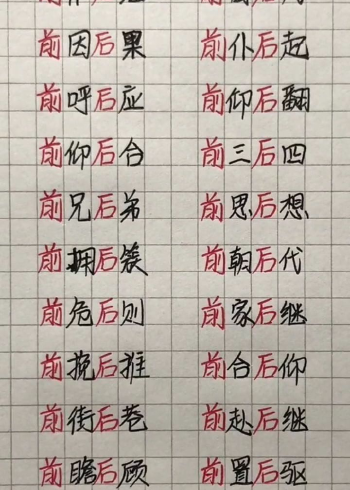 前因后果 前仆后起
前呼后应 前仰后翻
前仰后合 前三后四
前兄后弟 前思后想
前拥后簇 前朝后代
前危后则 前家后继
前挽后推 前合仰后
前街后巷 前赴后继
前瞻后顾 前置后驱